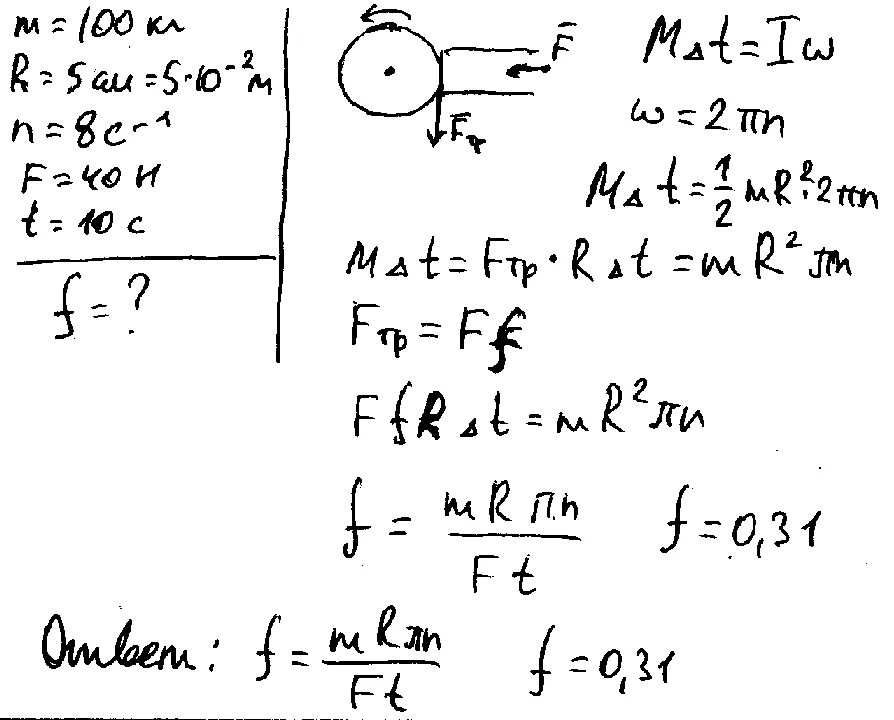 m = 100 кг
R = 5 см = 5·10⁻² м
n = 8 с⁻¹
F = 40 Н
t = 10 с
f = ?
F
Fтр
M Δt = Iω
ω = 2πn
M Δt = 1/2 mR²·2πn
M Δt = Fтр · R Δt = mR² πn
Fтр = F f
F f R Δt = mR² πn
f = mRπn / Ft f = 0,31
Ответ: f = mRπn / Ft f = 0,31